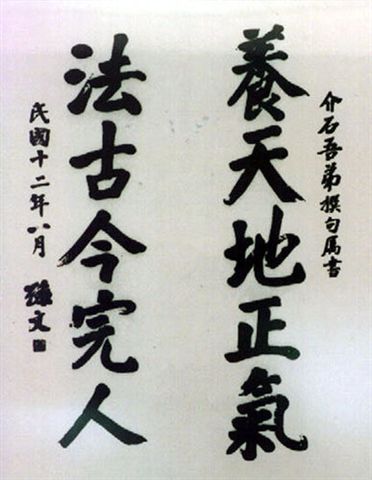 介石吾弟撰句屬書
養天地正氣
法古今完人
民國十二年八月
孫文